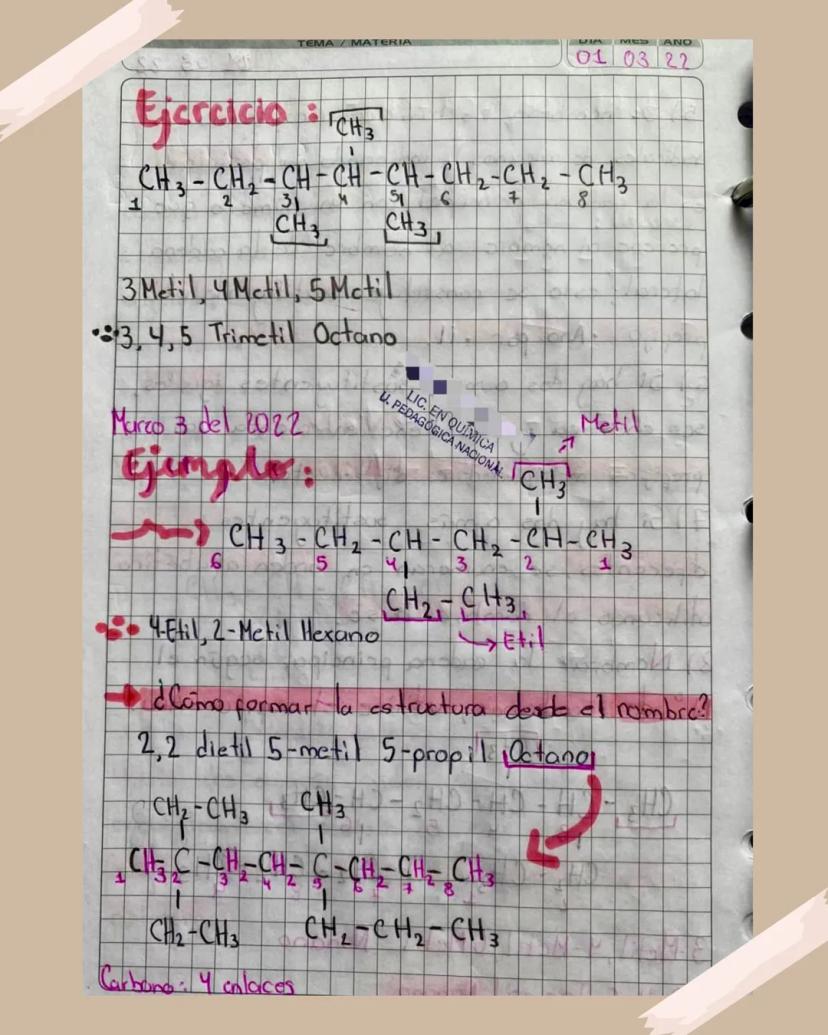 TEMA / MATERIA
DIA MES AÑO
01 03 22
Ejercicio :
CH3
CH3 - CH2 - CH - CH - CH - CH2 - CH2 - CH3
1 2 3 4 5 6 7 8
CH3 CH3
3 Metil, 4 Metil, 5 Metil
3, 4, 5 Trimetil Octano
LIC. EN QUÍMICA
U. PEDAGÓGICA NACIONAL
Marzo 3 del 2022
Metil
Ejemplo :
CH3
CH3 - CH2 - CH - CH2 - CH - CH3
6 5 4 3 2 1
CH2 - CH3
4-Etil, 2-Metil Hexano
Etil
¿Cómo formar la estructura desde el nombre?
2,2 dietil 5-metil 5-propil Octano
CH2-CH3 CH3
CH3-C-CH2-CH2-C-CH2-CH2-CH3
1 2 3 4 5 6 7 8
CH2-CH3 CH2-CH2-CH3
Carbono: 4 enlaces